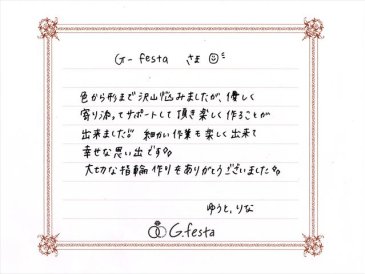 G-festa さま
色から形まで沢山悩みましたが、優しく
寄り添ってサポートして頂き楽しく作ることが
出来ました!! 細かい作業も楽しく出来て
幸せな思い出です
大切な指輪作りをありがとうございました
ゆうと、りな
G.festa